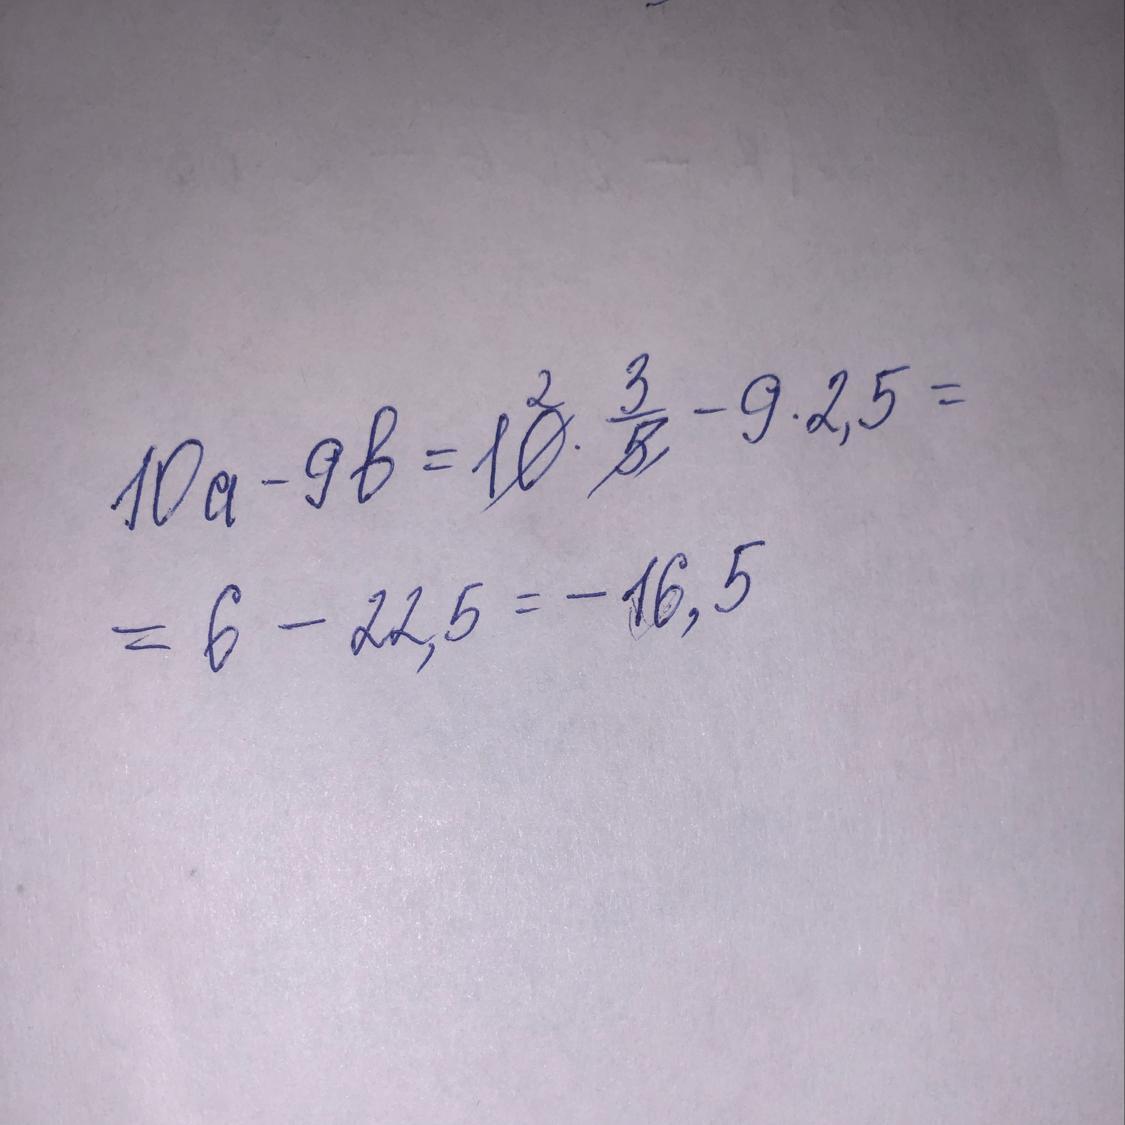 10a - 9b = 10² · 3/5 - 9 · 2,5 =
= 6 - 22,5 = - 16,5